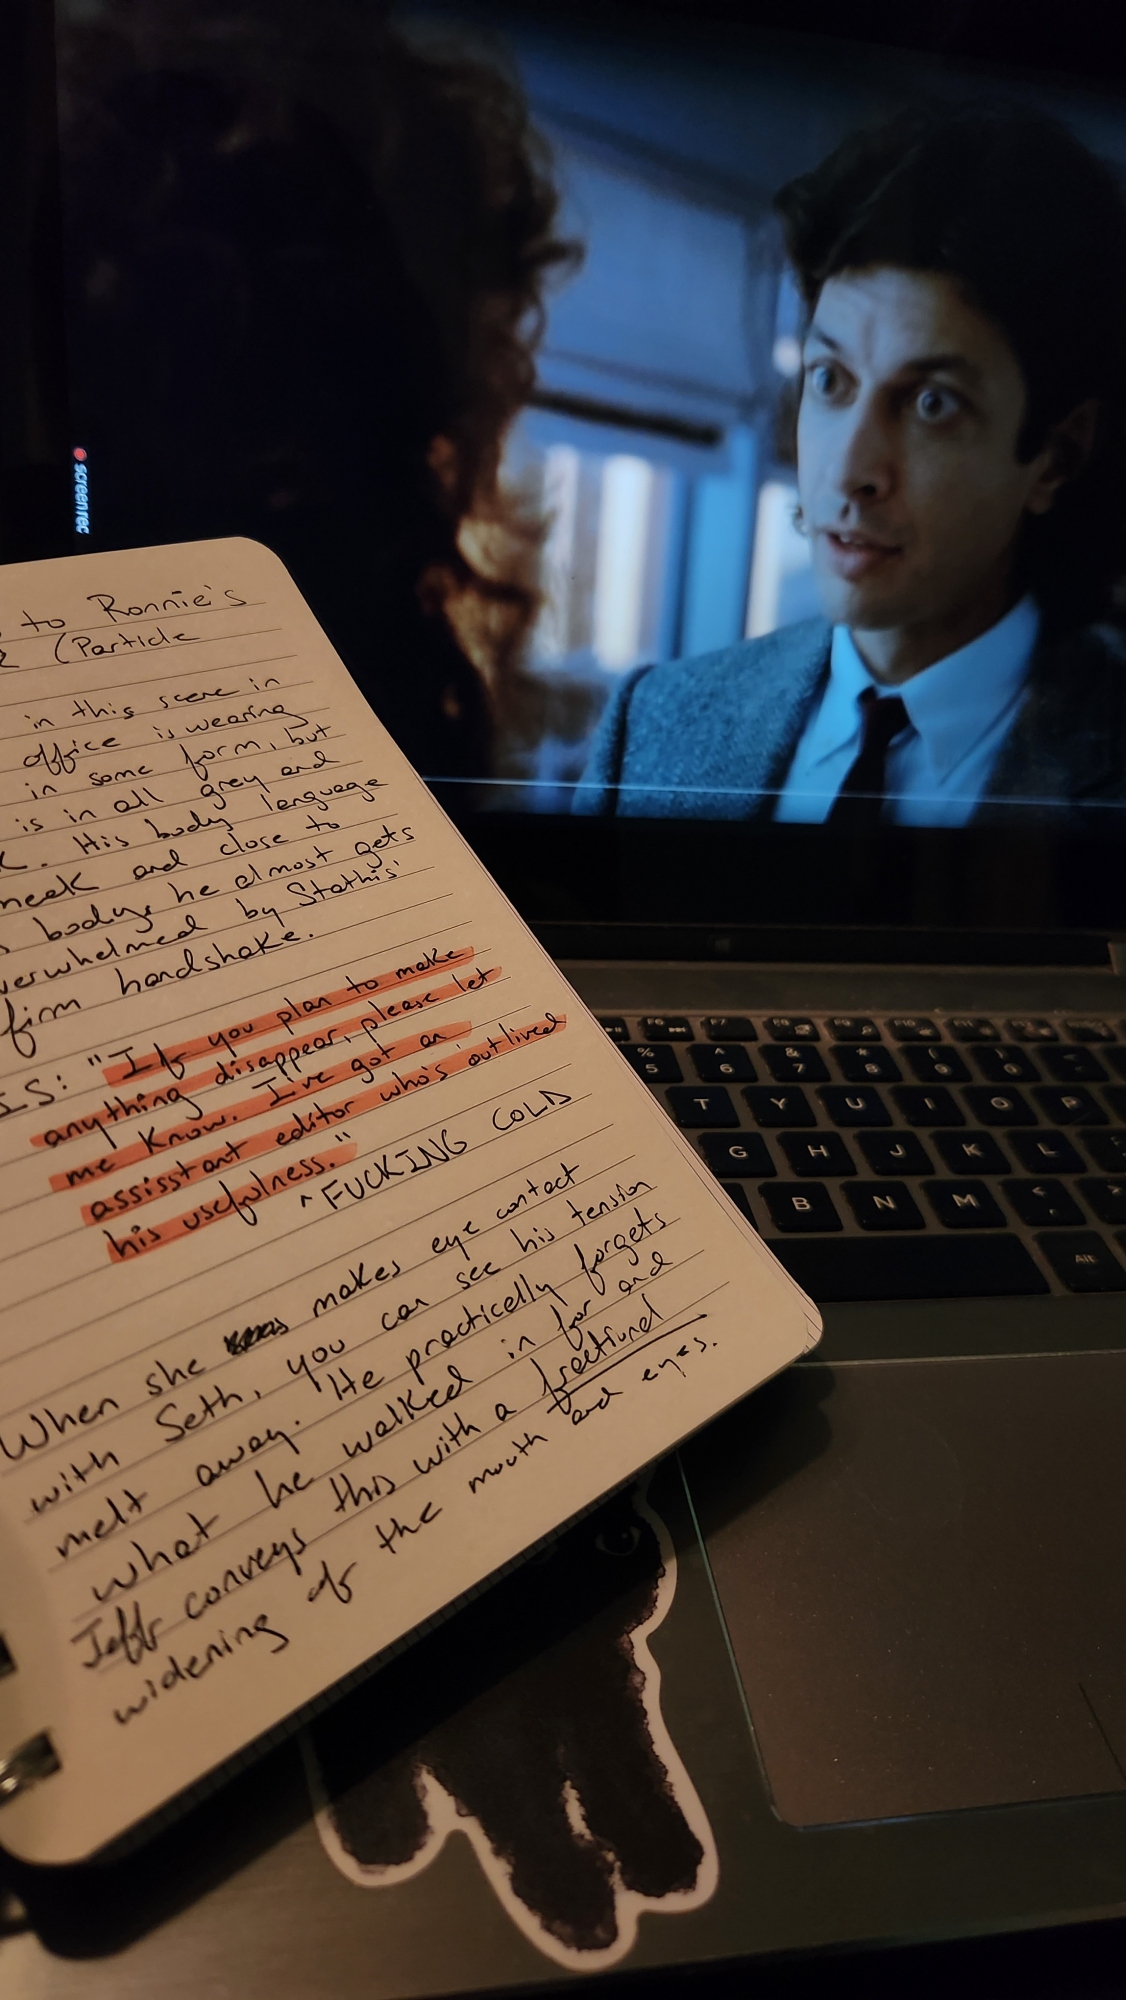 screenrec
to Ronnie's
(Particle
in this scene in
office is wearing
in some form, but
is in all grey and
His body language
meek and close to
body, he almost gets
verwhelmed by Stathis'
firm handshake.
IS: "If you plan to make
anything disappear, please let
me know. I've got an
assisstant editor who's outlived
his usefulness."
^FUCKING COLD
When she makes eye contact
with Seth, you can see his tension
melt away. He practically forgets
what he walked in for and
Jeff conveys this with a fractional
widening of the mouth and eyes.
F6
F7
F8
F9
F10
F11
F12
% 5
^ 6
& 7
* 8
( 9
) 0
T Y U I O P
G H J K L
B N M < ,
Alt